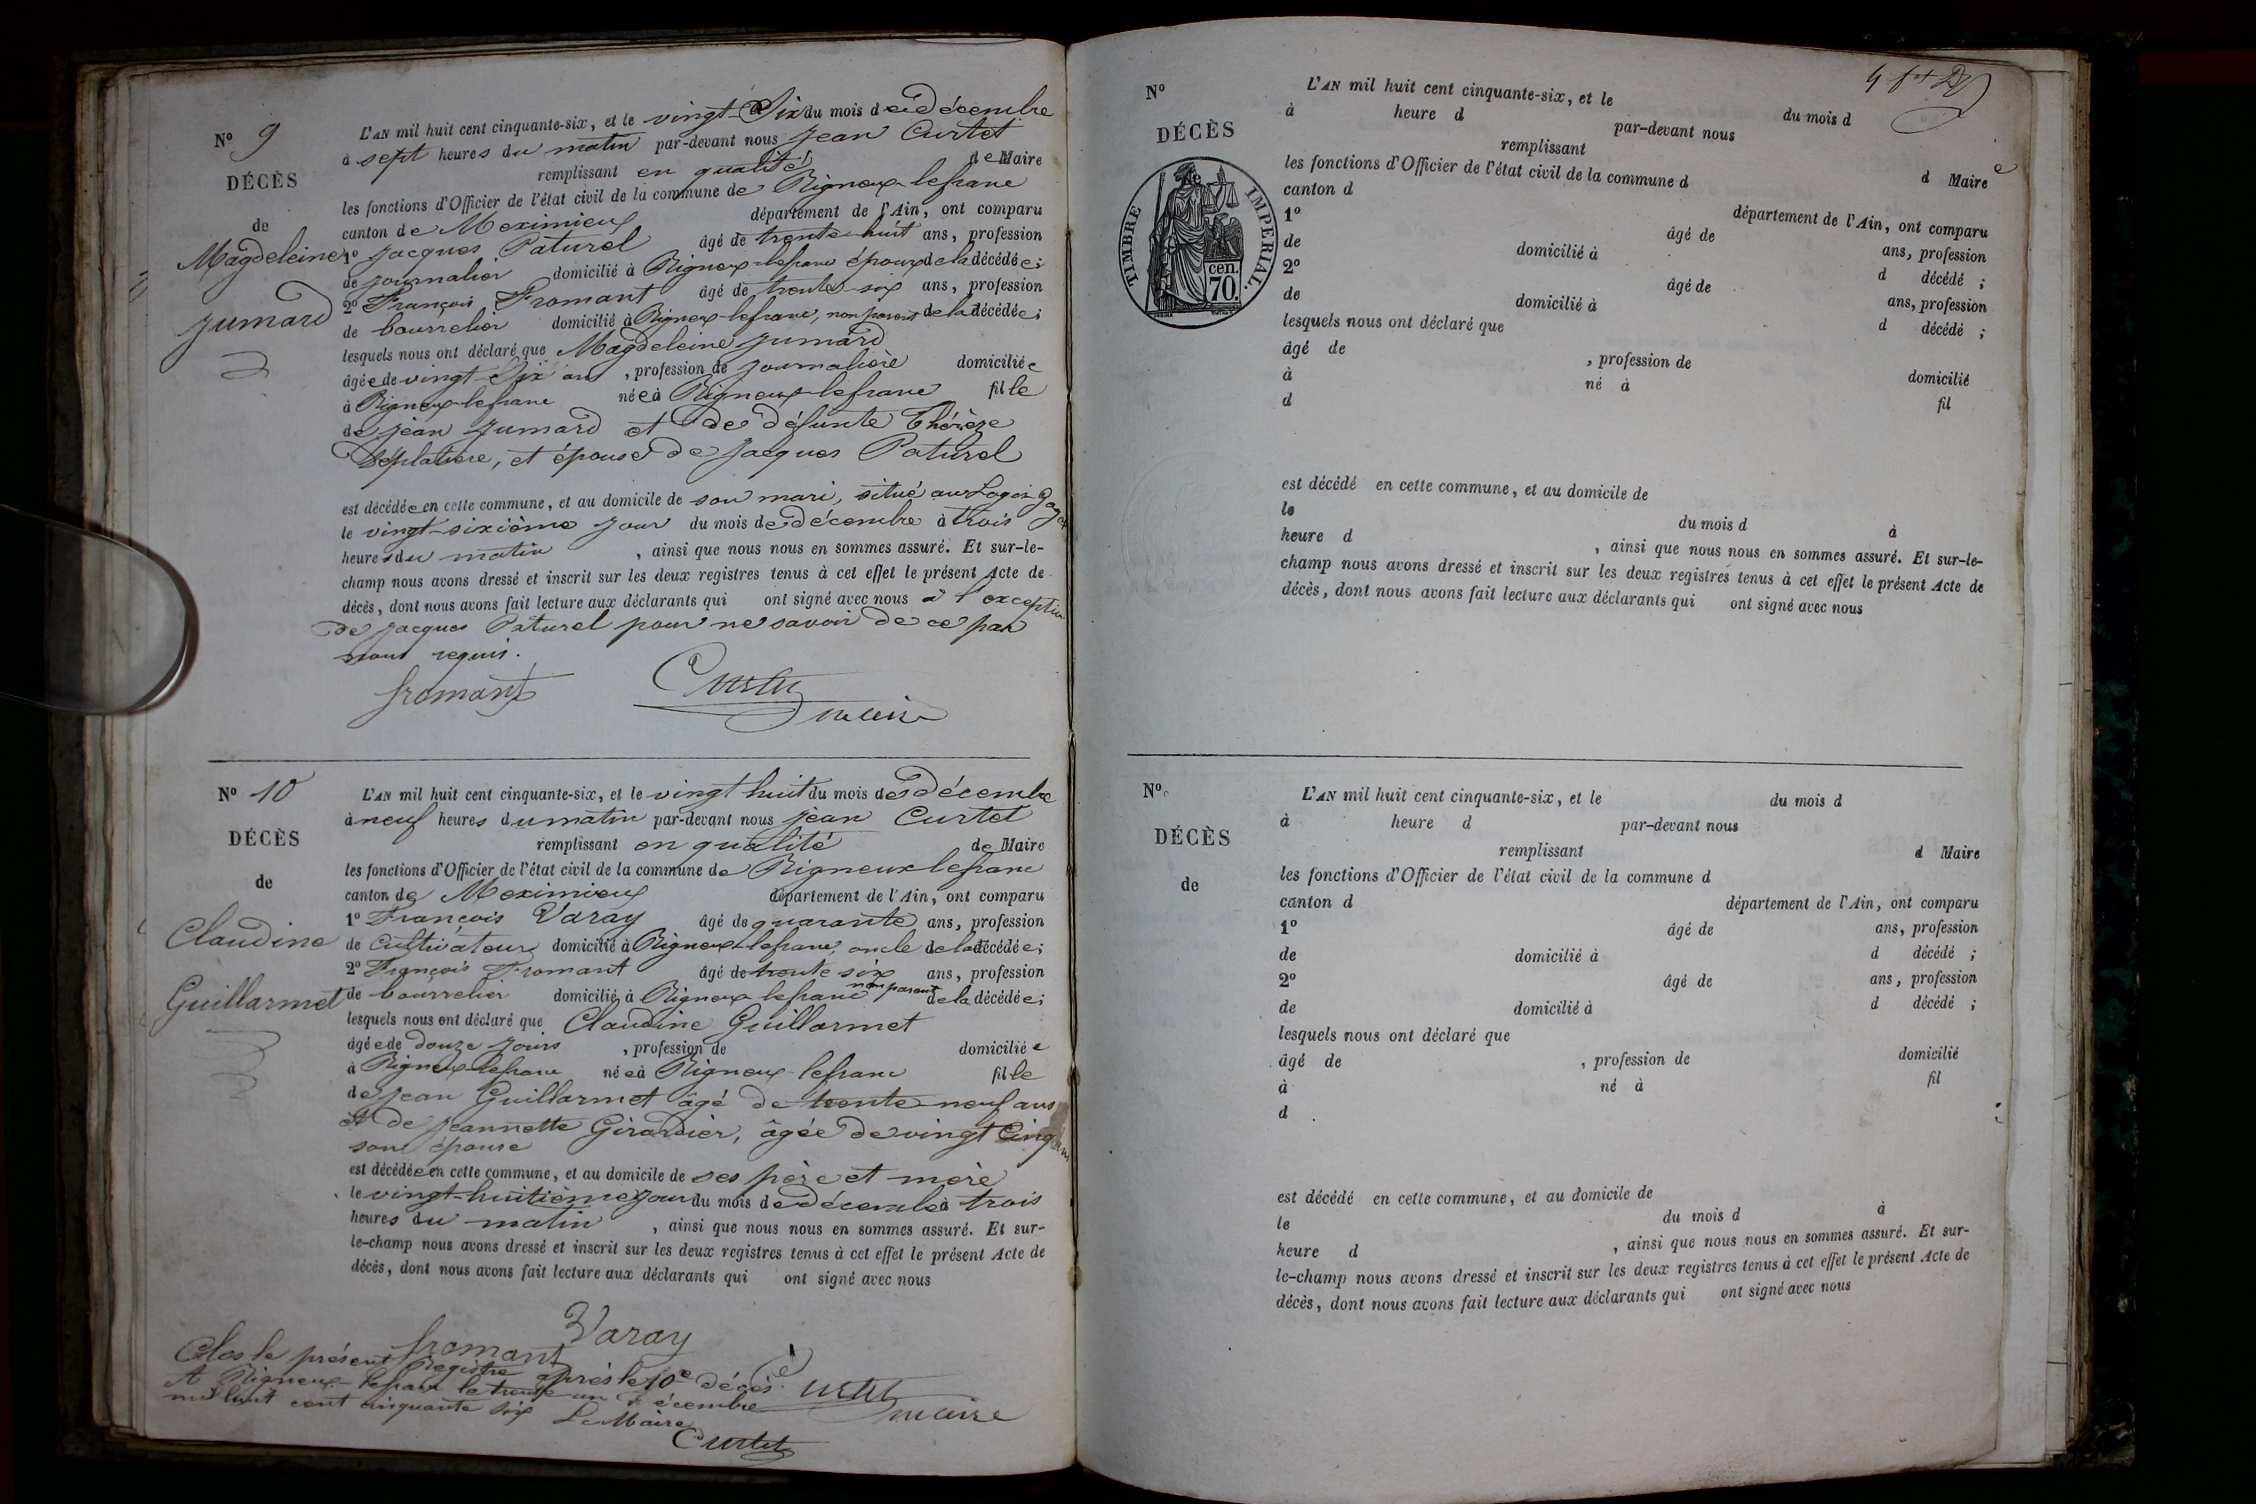 N° 9
DÉCÈS
de
Magdeleine
Jumard
L'AN mil huit cent cinquante-six, et le vingt-Six du mois de Décembre
à sept heures du matin par-devant nous Jean Curtet
remplissant en qualité de Maire
les fonctions d'Officier de l'état civil de la commune de Rigneux-lefranc
canton de Meximieux département de l'Ain, ont comparu
1° Jacques Paturel âgé de trente-huit ans, profession
de journalier domicilié à Rigneux-lefranc époux de la décédée;
2° François Fromant âgé de trente-six ans, profession
de bourrelier domicilié à Rigneux-lefranc, non parent de la décédée;
lesquels nous ont déclaré que Magdeleine Jumard
âgée de vingt-Six ans, profession de journalière domiciliée
à Rigneux-lefranc née à Rigneux-lefranc fille
de Jean Jumard et de défunte Thérèze
Desplatiere, et épouse de Jacques Paturel
est décédée en cette commune, et au domicile de son mari, situé au
le vingt-sixième jour du mois de Décembre à trois
heures du matin, ainsi que nous nous en sommes assuré. Et sur-le-
champ nous avons dressé et inscrit sur les deux registres tenus à cet effet le présent Acte de
décès, dont nous avons fait lecture aux déclarants qui ont signé avec nous à l'exception
de Jacques Paturel pour ne savoir de ce par
nous requis.
fromant Curtet
maire
N° 10
DÉCÈS
de
Claudine
Guillarmet
L'AN mil huit cent cinquante-six, et le vingt huit du mois de Décembre
à neuf heures du matin par-devant nous Jean Curtet
remplissant en qualité de Maire
les fonctions d'Officier de l'état civil de la commune de Rigneux lefranc
canton de Meximieux département de l'Ain, ont comparu
1° François Varay âgé de quarante ans, profession
de Cultivateur domicilié à Rigneux-lefranc, oncle de la décédée;
2° François Fromant âgé de trente six ans, profession
de bourrelier domicilié à Rigneux lefranc non parent de la décédée;
lesquels nous ont déclaré que Claudine Guillarmet
âgée de douze jours, profession de domiciliée
à Rigneux-lefranc née à Rigneux-lefranc fille
de Jean Guillarmet âgé de trente-neuf ans
et de Jeannette Girardier, âgée de vingt Cinq ans
son épouse
est décédée en cette commune, et au domicile de ses père et mère
le vingt-huitième jour du mois de Décembre à trois
heures du matin, ainsi que nous nous en sommes assuré. Et sur-
le-champ nous avons dressé et inscrit sur les deux registres tenus à cet effet le présent Acte de
décès, dont nous avons fait lecture aux déclarants qui ont signé avec nous
Varay
fromant
Curtet
maire
Clos le présent Registre après le 10e décès
A Rigneux-lefranc le trente un Décembre
mil huit cent cinquante six Le Maire
Curtet
N°
DÉCÈS
TIMBRE IMPÉRIAL.
cen.
70.
L'AN mil huit cent cinquante-six, et le du mois d
à heure d par-devant nous
remplissant d Maire
les fonctions d'Officier de l'état civil de la commune d
canton d département de l'Ain, ont comparu
1° âgé de ans, profession
de domicilié à d décédé ;
2° âgé de ans, profession
de domicilié à d décédé ;
lesquels nous ont déclaré que
âgé de , profession de domicilié
à né à fil
d
est décédé en cette commune, et au domicile de
le du mois d à
heure d , ainsi que nous nous en sommes assuré. Et sur-le-
champ nous avons dressé et inscrit sur les deux registres tenus à cet effet le présent Acte de
décès, dont nous avons fait lecture aux déclarants qui ont signé avec nous
N°
DÉCÈS
de
L'AN mil huit cent cinquante-six, et le du mois d
à heure d par-devant nous
remplissant d Maire
les fonctions d'Officier de l'état civil de la commune d
canton d département de l'Ain, ont comparu
1° âgé de ans, profession
de domicilié à d décédé ;
2° âgé de ans, profession
de domicilié à d décédé ;
lesquels nous ont déclaré que
âgé de , profession de domicilié
à né à fil
d
est décédé en cette commune, et au domicile de
le du mois d à
heure d , ainsi que nous nous en sommes assuré. Et sur-
le-champ nous avons dressé et inscrit sur les deux registres tenus à cet effet le présent Acte de
décès, dont nous avons fait lecture aux déclarants qui ont signé avec nous